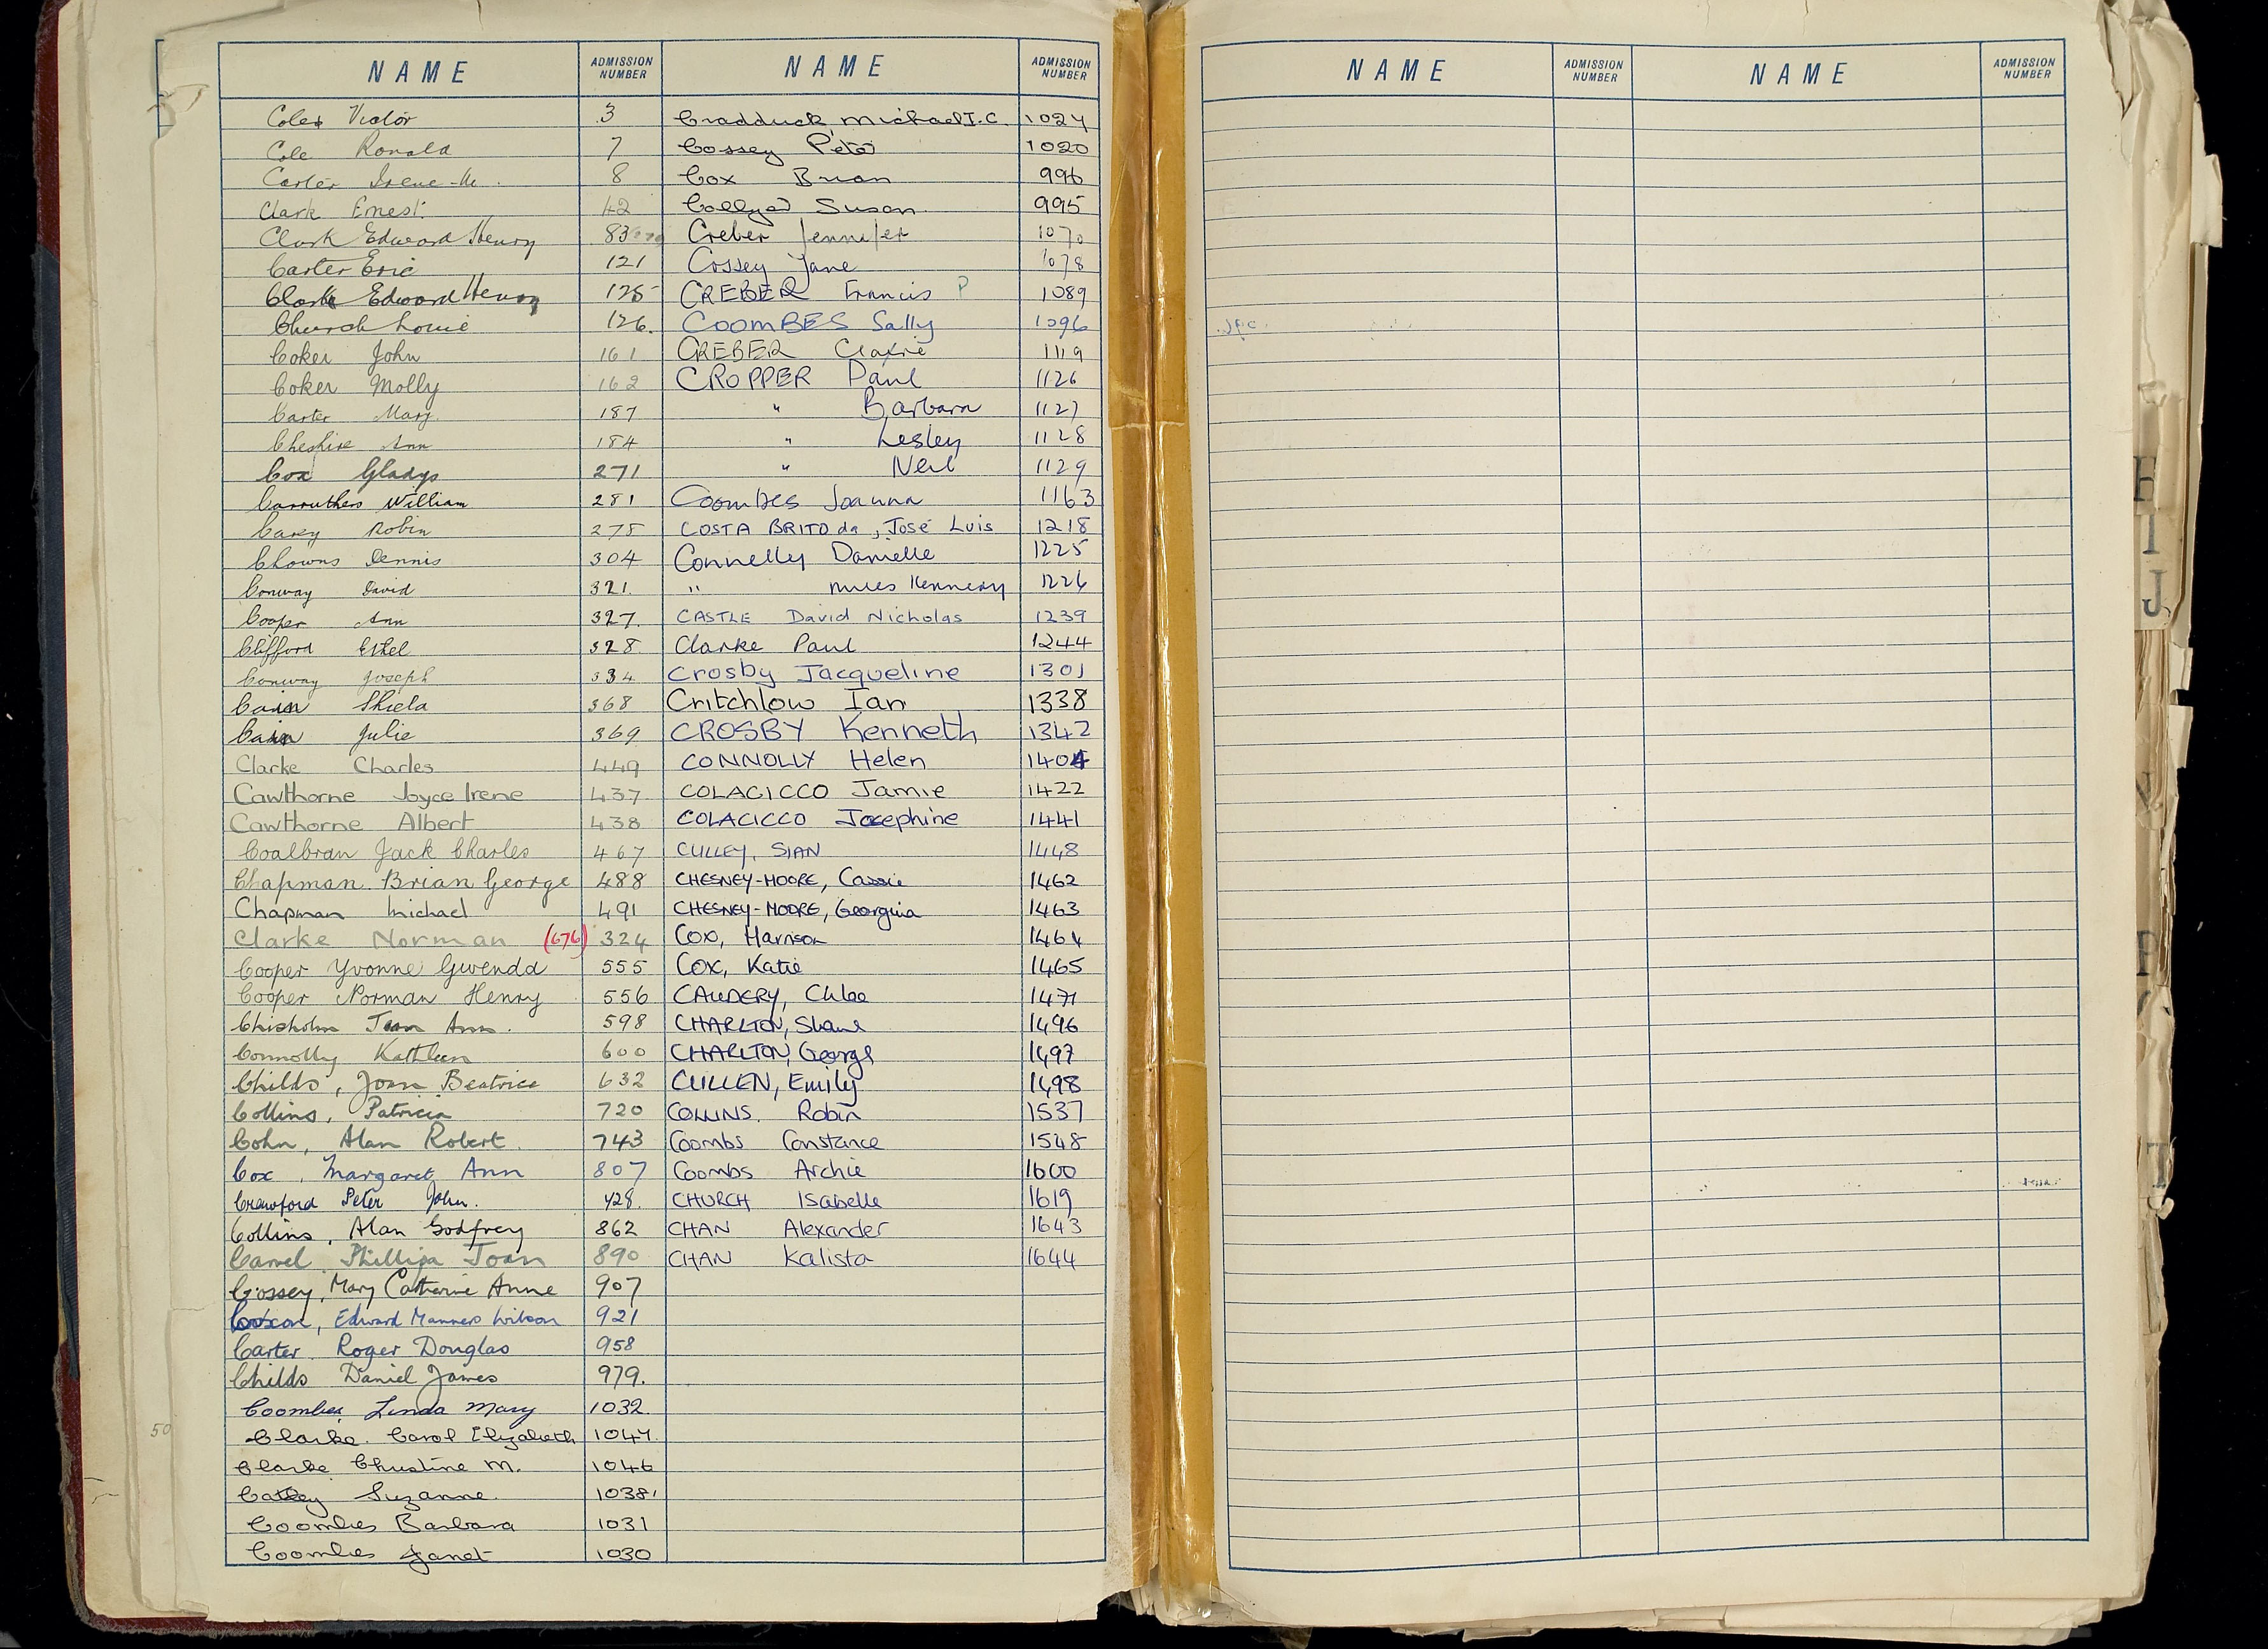 NAME ADMISSION NUMBER NAME ADMISSION NUMBER
Cole Victor 3
Cole Ronald 7
Carter Irene M. 8
Clark Ernest 42
Clark Edward Henry 83
Carter Eric 121
Clark Edward Henry 125
Church Louie 126.
Coker John 161
Coker Molly 162
Carter Mary 187
Cheshire Ann 184
Cox Gladys 271
Carruthers William 281
Carey Robin 275
Chowns Dennis 304
Conway David 321.
Cooper Ann 327.
Clifford Ethel 328
Conway Joseph 334
Cain Shiela 368
Cain Julie 369
Clarke Charles 449
Cawthorne Joyce Irene 437
Cawthorne Albert 438
Coalbran Jack Charles 467
Chapman Brian George 488
Chapman Michael 491
Clarke Norman (676) 324
Cooper Yvonne Gwenda 555
Cooper Norman Henry 556
Chisholm Jean Ann. 598
Connolly Kathleen 600
Childs, Joan Beatrice 632
Collins, Patricia 720
Cohn, Alan Robert 743
Cox, Margaret Ann 807
Crawford Peter John. 428.
Collins, Alan Godfrey 862
Carvel Phillipa Joan 890
Cossey, Mary Catherine Anne 907
Coxon, Edward Manners Wilson 921
Carter Roger Douglas 958
Childs Daniel James 979.
Coombes Linda Mary 1032
50
Clarke. Carol Elizabeth 1047
Clarke Christine M. 1046
Suzanne 1038
Coombes Barbara 1031
Coombes Janet 1030
Cradduck Michael J.C. 1024
Cossey Peter 1020
Cox Brian 996
Collyer Susan 995
Creber Jennifer 1070
Cossey Jane 1078
CREBER Francis P 1089
COOMBES Sally 1096
CREBER Claire 1119
CROPPER Paul 1126
" Barbara 1127
" Lesley 1128
" Neil 1129
Coombes Joanna 1163
COSTA BRITO da, José Luis 1218
Connelly Danielle 1225
" Miles Kennedy 1226
CASTLE David Nicholas 1239
Clarke Paul 1244
Crosby Jacqueline 1301
Critchlow Ian 1338
CROSBY Kenneth 1342
CONNOLLY Helen 1404
COLACICCO Jamie 1422
COLACICCO Josephine 1441
CULLEY, SIAN 1448
CHESNEY-MOORE, Cassie 1462
CHESNEY-MOORE, Georgina 1463
COX, Harrison 1464
COX, Katie 1465
CAUDERY, Chloe 1471
CHARLTON, Shane 1496
CHARLTON, George 1497
CULLEN, Emily 1498
COLLINS. Robin 1537
Coombs Constance 1548
Coombs Archie 1600
CHURCH Isabelle 1619
CHAN Alexander 1643
CHAN Kalista 1644
NAME ADMISSION NUMBER NAME ADMISSION NUMBER
H
I
J
N
T